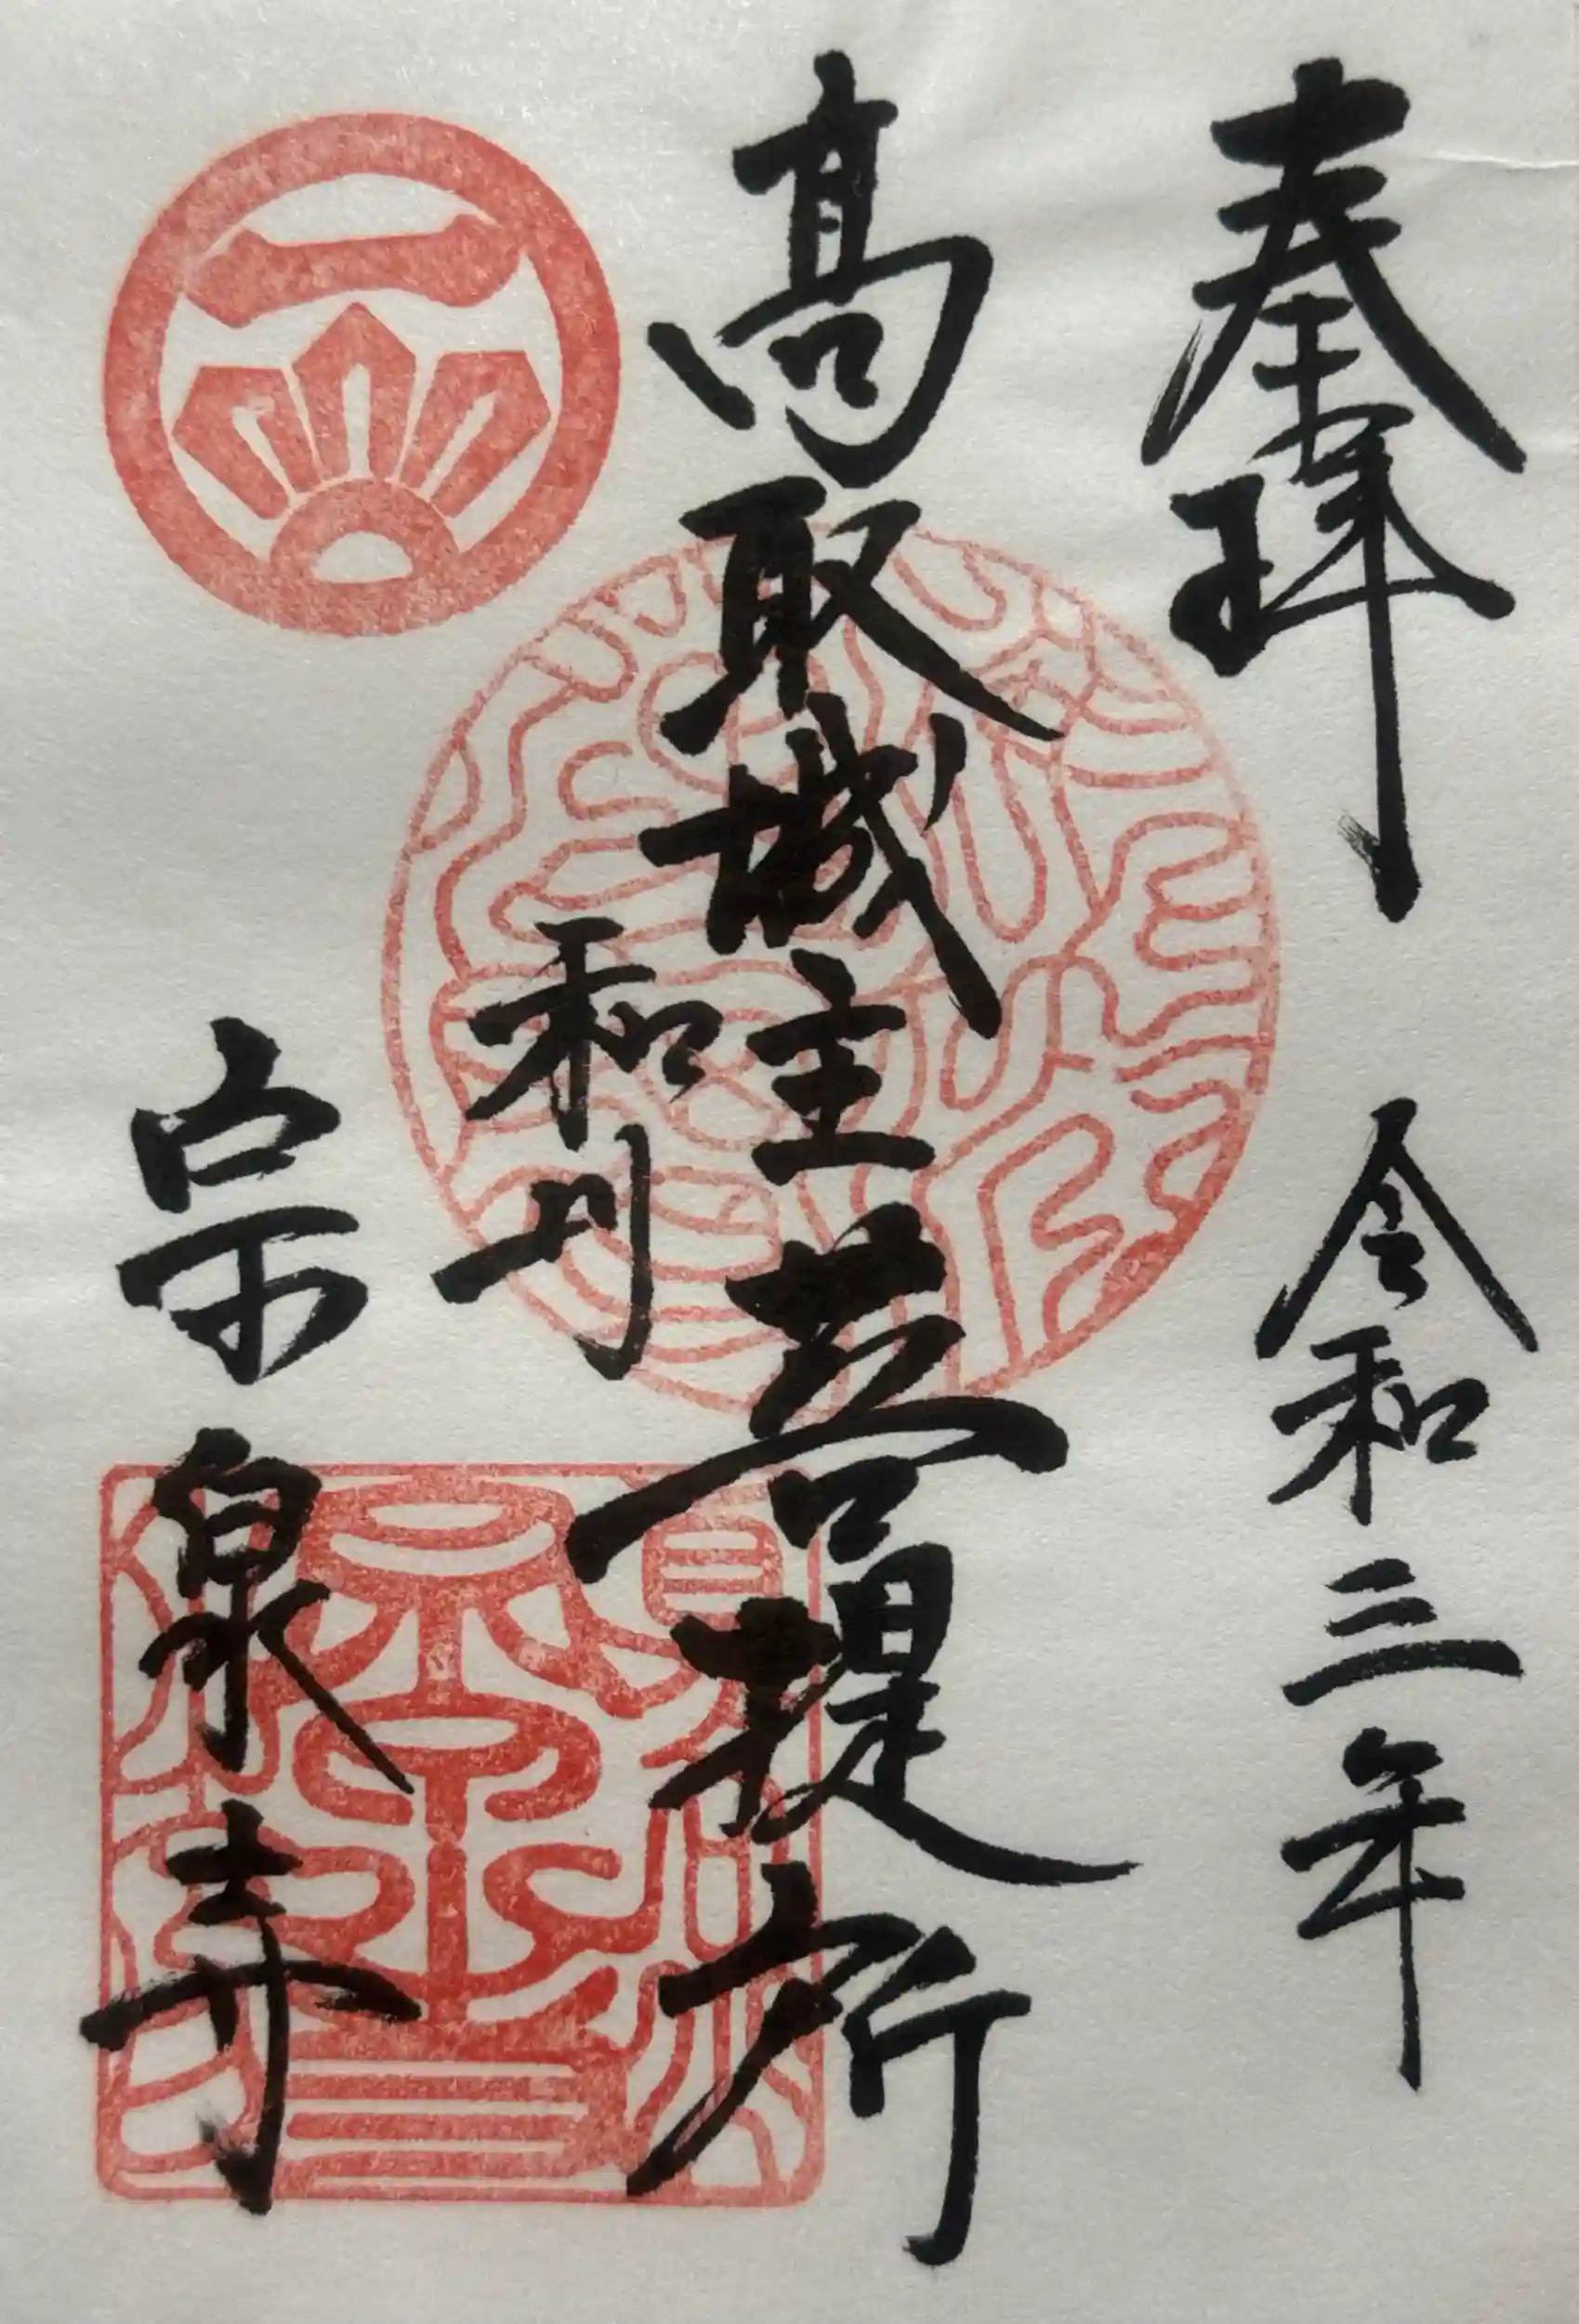 奉拝　令和三年
高取城主菩提所
和州
宗泉寺